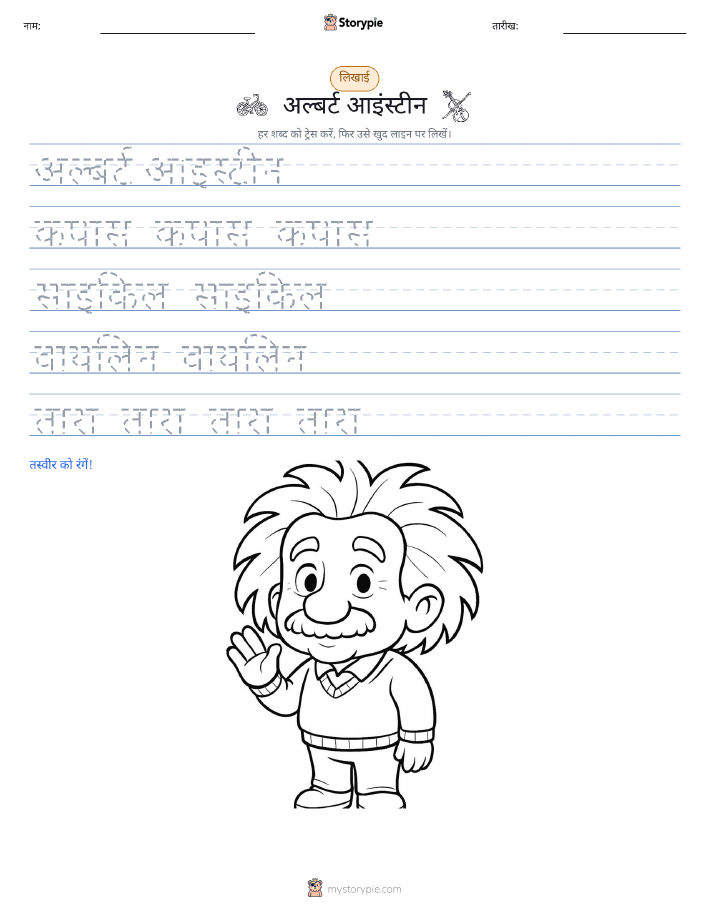 नाम:
Storypie
तारीख:
लिखाई
अल्बर्ट आइंस्टीन
हर शब्द को ट्रेस करें, फिर उसे खुद लाइन पर लिखें।
अल्बर्ट आइंस्टीन
कपास कपास कपास
साइकिल साइकिल
वायलिन वायलिन
तारा तारा तारा तारा
तस्वीर को रंगें!
mystorypie.com